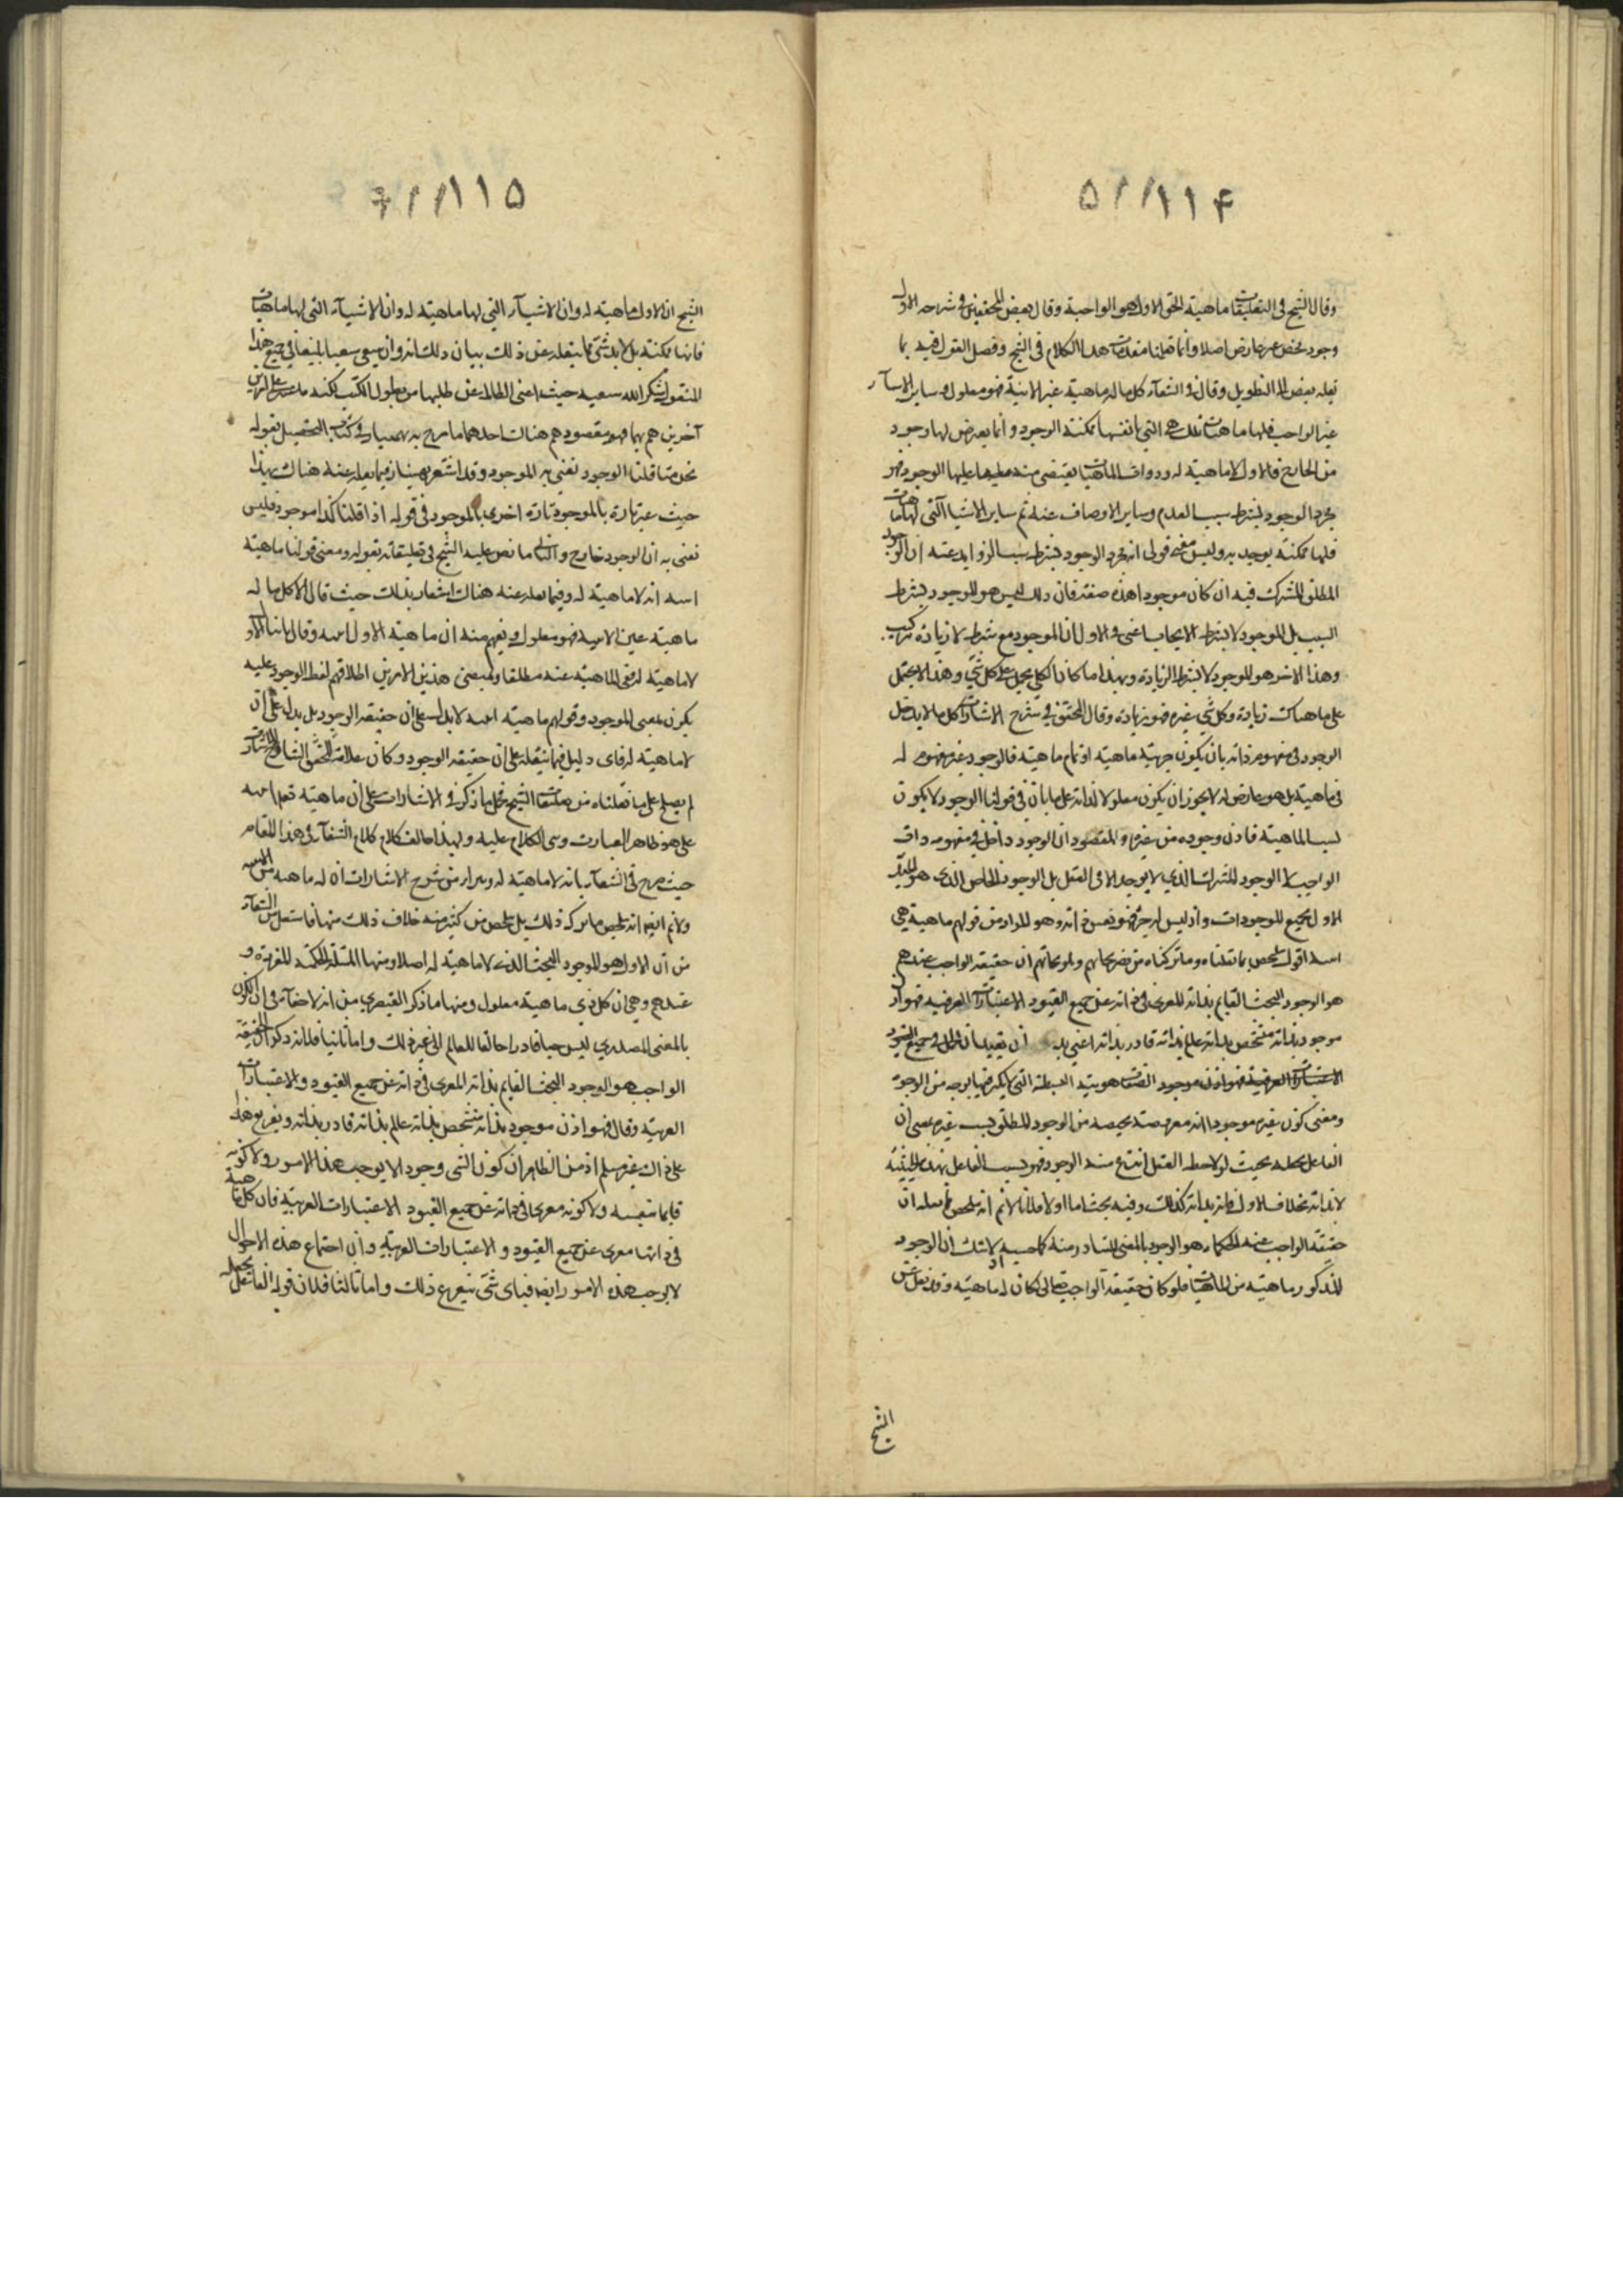 ۱۱۴ // ۵
وقال الشيخ في التعليقات ماهية الحق الاول هو الواجبة وقال بعض المحققين في شرحه الاول
وجود محض غير عارض اصلا وانما فصلنا هذا الكلام في النهج وفصل القول فيه بما
نعله بعض التطويل وقال في الشفآء كل ماله ماهية غير الانية فهو معلول وساير الاشيآء
غير الواجب فلها ماهيات تلك هي التي بانفسها ممكنة الوجود وانما يعرض لها وجود
من الخارج فالاول لا ماهية له وذوات الماهيات يفيض منه عليها الوجود فهو
مجرد الوجود بشرط سلب العدم وساير الاوصاف عنه ثم ساير الاشيا التي لها ماهيات
فانها ممكنة يوجد به وليس معنى قولي انه مجرد الوجود بشرط سلب الزوايد عنه ان الوجود
المطلق المشترك فيه ان كان موجودا هذه صفته فان ذلك ليس هو الموجود بشرط
السلب بل الموجود لا بشرط الايجاب اعني في الاول انه الموجود مع شرط لا زيادة تركيب
وهذا الاخر هو الموجود لا بشرط الزيادة ولهذا ما كان الكلي يحمل على كل شي وهذا لا يحمل
على ما هناك زيادة وكل شي غيره فهو زيادة وقال المحقق في شرح الاشارات كل ما لا يدخل
الوجود في مفهوم ذاته بان يكون جزء ماهيته او تمام ماهيته فالوجود غير مقوم له
في ماهيته بل هو عارض له ولا يجوز ان يكون معلولا لذاته على ما بان في قولنا الوجود لا يكون
بسبب الماهية فاذن وجوده من غيره والمقصود ان الوجود داخل في مفهوم ذات
الواجب لا الوجود المشترك الذي لا يوجد الا في العقل بل الوجود الخاص الذي هو المبدأ
الاول لجميع الموجودات واذ ليس له جزء فهو نفس ذاته وهو المراد من قولهم ماهيته هي
انيته اقول تلخص بما نقلناه وما تركناه من تصريحاتهم وتلويحاتهم ان حقيقة الواجب عندهم
هو الوجود البحث القايم بذاته المعرى في ذاته عن جميع القيود الاعتبارات العرضية فهو اذن
موجود بذاته متشخص بذاته عالم بذاته قادر بذاته اعني بذلك ان
الاعتبارات العرضية فهو اذن موجود الصفات هويته البسيطة التي لا تكثر فيها بوجه من الوجوه
ومعنى كون غيره موجودا انه معروض لحصة من الوجود المطلق بسبب غيره بمعنى ان
الفاعل يجعله بحيث لو لاحظه العقل انتزع منه الوجود فهو بسبب الفاعل بهذه الحيثية
لا بذاته بخلاف الاول فانه بذاته كذلك وفيه بحث اما اولا فلانا لا نم انه تلخص مما نقله ان
حقيقة الواجب عند الحكماء هو الوجود بالمعنى المتبادر منه كما حسبه اذ لا شك ان الوجود
المذكور ماهية من الماهيات فلو كان حقيقة الواجب تعالى لكان له ماهية وقد نقل عن
الشيخ
۱۱۵ // ۶
الشيخ ان الاول لا ماهية له وان الاشيآء التي لها ماهية له وان الاشيآء التي لها ماهيات
فانها ممكنة بل لا يدل شي مما ينقله عن ذلك بيان ذلك انه وان سعى سعيا بليغا في جمع هذا
المنقول شكر الله سعيه حيث اغنى الطالب عن طلبها من مطول الكتب لكنه ما عثر على امرين
آخرين هم بهما فهم مقصودهم هناك احدهما ما صرح به بهمنيار في كتاب التحصيل بقوله
نحن متى قلنا الوجود نعني به الموجود وقد اشعر بهمنيار فيما نقله عنه هناك بهذا
حيث عبر تارة بالموجود تارة اخرى بالموجود في قوله اذا قلنا كذا موجود فليس
نعني به ان الوجود خارج والثاني ما نص عليه الشيخ في تعليقاته بقوله ومعنى قولنا ماهيته
انيته انه لا ماهية له وفيما نقله عنه هناك اشعار بذلك حيث قال اولا كل ما له
ماهية غير الانية فهو معلول ويفهم منه ان ماهية الاول انيته وقال ثانيا الاول
لا ماهية له نفى الماهية عنه مطلقا وبمقتضى هذين الامرين اطلاقهم لفظ الوجود عليه
يكون بمعنى الموجود وقولهم ماهيته انيته لا يدل على ان حقيقته الوجود بل يدل على ان
لا ماهية له فاي دليل فيما نقله على ان حقيقته الوجود وكان علامة المحقق الشارح الاشارات
لم يطلع على ما نقلناه من تعليقات الشيخ فحمل ما ذكره في الاشارات على ان ماهيته نفس انيته
على هو ظاهر العبارت وبنى الكلام عليه ولهذا خالف كلام كلام الشفآء في هذا المقام
حيث صرح في الشفآء بانه لا ماهية له وببرار من شرح الاشارات ان له ماهية
ولانم ايضا انه تلخص ما تركه ذلك بل تلخص من كثير منه خلاف ذلك منها ما نقل عن الشفآء
من ان الاول هو الموجود البحت الذي لا ماهية له اصلا ومنها المسئلة المحكمة المقررة
عندهم وهي ان كل ذي ماهية معلول ومنها ما ذكر القيصري من انه لا خفآء في ان الكون
بالمعنى المصدري ليس حيا قادرا خالقا للعالم الى غير ذلك واما ثانيا فلانه ذكر ان حقيقة
الواجب هو الوجود البحت القايم بذاته المعرى في ذاته عن جميع القيود والاعتبارات
العرضية وقال فهو اذن موجود بذاته متشخص بذاته عالم بذاته قادر بذاته وتفريع هذا
على ذاك غير مسلم اذ من الظاهر ان كون الشي وجودا لا يوجب هذه الامور ولا كونه
قايما بنفسه ولا كونه معرى في ذاته عن جميع القيود الاعتبارات العرضية فان كل ماهية
في ذاتها معرى عن جميع القيود والاعتبارات العرضية وان اجتماع هذه الاحوال
لا يوجب هذه الامور ايضا فباي شي يتفرع ذلك واما ثالثا فلان قوله الفاعل يجعله